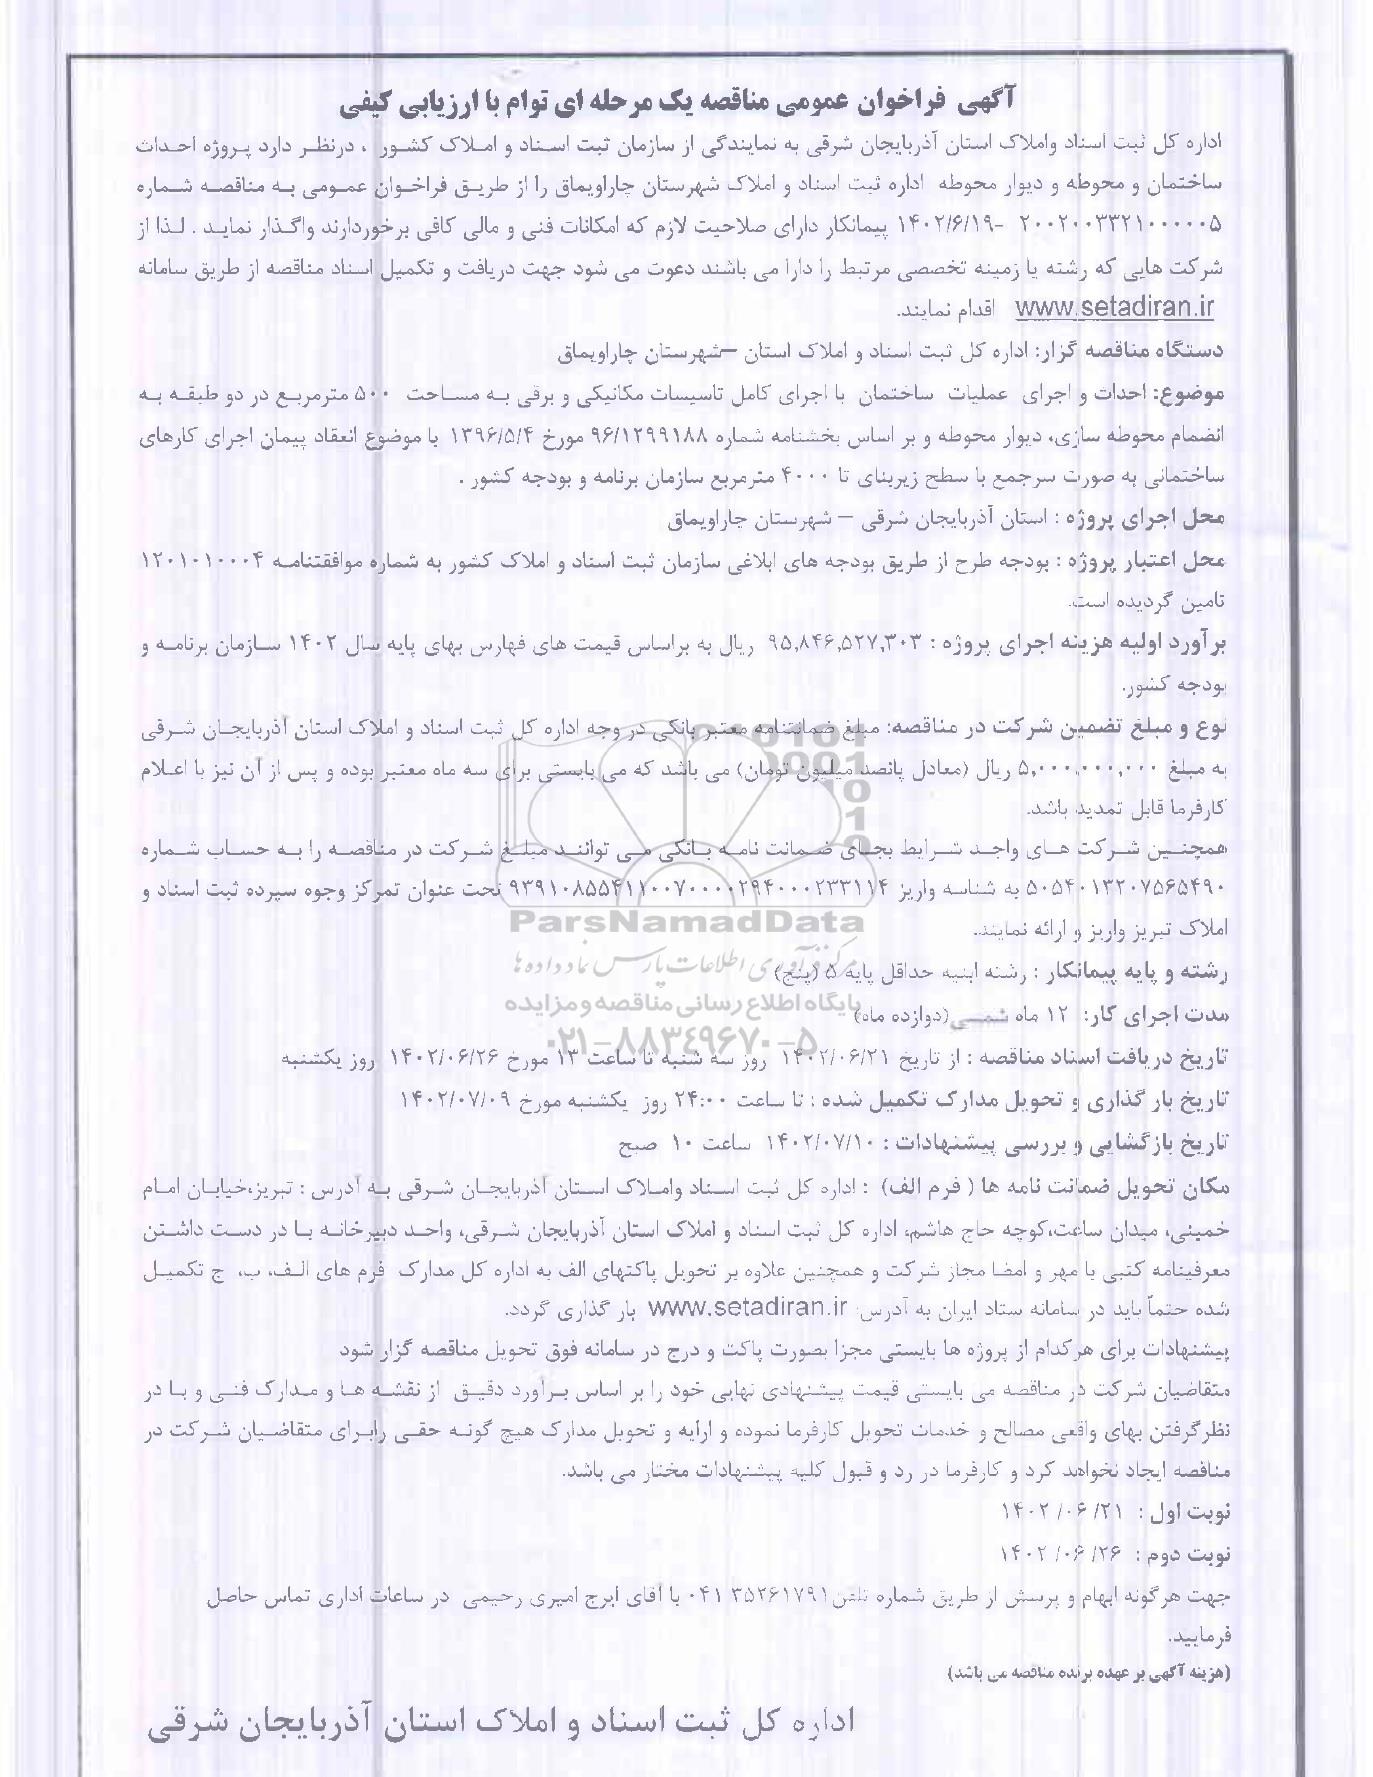 آگهی فراخوان عمومی مناقصه یک مرحله ای توام با ارزیابی کیفی
اداره کل ثبت اسناد واملاک استان آذربایجان شرقی به نمایندگی از سازمان ثبت اسناد و املاک کشور ، درنظر دارد پروژه احداث
ساختمان و محوطه و دیوار محوطه اداره ثبت اسناد و املاک شهرستان چاراویماق را از طریق فراخوان عمومی به مناقصه شماره
۲۰۰۲۰۰۳۳۲۱۰۰۰۰۰۵ -۱۴۰۲/۶/۱۹ پیمانکار دارای صلاحیت لازم که امکانات فنی و مالی کافی برخوردارند واگذار نماید . لذا از
شرکت هایی که رشته یا زمینه تخصصی مرتبط را دارا می باشند دعوت می شود جهت دریافت و تکمیل اسناد مناقصه از طریق سامانه
www.setadiran.ir اقدام نمایند.
دستگاه مناقصه گزار: اداره کل ثبت اسناد و املاک استان –شهرستان چاراویماق
موضوع: احداث و اجرای عملیات ساختمان با اجرای کامل تاسیسات مکانیکی و برقی به مساحت ۵۰۰ مترمربع در دو طبقه به
انضمام محوطه سازی، دیوار محوطه و بر اساس بخشنامه شماره ۹۶/۱۲۹۹۱۸۸ مورخ ۱۳۹۶/۵/۴ با موضوع انعقاد پیمان اجرای کارهای
ساختمانی به صورت سرجمع با سطح زیربنای تا ۴۰۰۰ مترمربع سازمان برنامه و بودجه کشور .
محل اجرای پروژه : استان آذربایجان شرقی – شهرستان چاراویماق
محل اعتبار پروژه : بودجه طرح از طریق بودجه های ابلاغی سازمان ثبت اسناد و املاک کشور به شماره موافقتنامه ۱۲۰۱۰۱۰۰۰۴
تامین گردیده است.
برآورد اولیه هزینه اجرای پروژه : ۹۵,۸۴۶,۵۲۷,۳۰۳ ریال به براساس قیمت های فهارس بهای پایه سال ۱۴۰۲ سازمان برنامه و
بودجه کشور.
نوع و مبلغ تضمین شرکت در مناقصه: مبلغ ضمانتنامه معتبر بانکی در وجه اداره کل ثبت اسناد و املاک استان آذربایجان شرقی
به مبلغ ۵,۰۰۰,۰۰۰,۰۰۰ ریال (معادل پانصد میلیون تومان) می باشد که می بایستی برای سه ماه معتبر بوده و پس از آن نیز با اعلام
کارفرما قابل تمدید باشد.
همچنین شرکت های واجد شرایط بجای ضمانت نامه بانکی می توانند مبلغ شرکت در مناقصه را به حساب شماره
۵۰۵۴۰۱۳۲۰۷۵۶۵۴۹۰ به شناسه واریز ۹۳۹۱۰۸۵۵۴۱۱۰۰۷۰۰۰۰۲۹۴۰۰۰۲۳۳۱۱۴ تحت عنوان تمرکز وجوه سپرده ثبت اسناد و
املاک تبریز واریز و ارائه نمایند.
ParsNamadData
مرکز فرآوری اطلاعات پارس نماد داده ها
رشته و پایه پیمانکار : رشته ابنیه حداقل پایه ۵ (پنج)
پایگاه اطلاع رسانی مناقصه و مزایده
مدت اجرای کار: ۱۲ ماه شمسی(دوازده ماه)
۰۲۱-۸۸۳۴۹۶۷۰-۵
تاریخ دریافت اسناد مناقصه : از تاریخ ۱۴۰۲/۰۶/۲۱ روز سه شنبه تا ساعت ۱۳ مورخ ۱۴۰۲/۰۶/۲۶ روز یکشنبه
تاریخ بارگذاری و تحویل مدارک تکمیل شده : تا ساعت ۲۴:۰۰ روز یکشنبه مورخ ۱۴۰۲/۰۷/۰۹
تاریخ بازگشایی و بررسی پیشنهادات : ۱۴۰۲/۰۷/۱۰ ساعت ۱۰ صبح
مکان تحویل ضمانت نامه ها ( فرم الف) : اداره کل ثبت اسناد واملاک استان آذربایجان شرقی به آدرس : تبریز،خیابان امام
خمینی، میدان ساعت،کوچه حاج هاشم، اداره کل ثبت اسناد و املاک استان آذربایجان شرقی، واحد دبیرخانه با در دست داشتن
معرفینامه کتبی با مهر و امضا مجاز شرکت و همچنین علاوه بر تحویل پاکتهای الف به اداره کل مدارک فرم های الف، ب، ج تکمیل
شده حتماً باید در سامانه ستاد ایران به آدرس www.setadiran.ir بار گذاری گردد.
پیشنهادات برای هرکدام از پروژه ها بایستی مجزا بصورت پاکت و درج در سامانه فوق تحویل مناقصه گزار شود
متقاضیان شرکت در مناقصه می بایستی قیمت پیشنهادی نهایی خود را بر اساس برآورد دقیق از نقشه ها و مدارک فنی و با در
نظرگرفتن بهای واقعی مصالح و خدمات تحویل کارفرما نموده و ارایه و تحویل مدارک هیچ گونه حقی رابرای متقاضیان شرکت در
مناقصه ایجاد نخواهد کرد و کارفرما در رد و قبول کلیه پیشنهادات مختار می باشد.
نوبت اول : ۲۱/ ۰۶/ ۱۴۰۲
نوبت دوم : ۲۶/ ۰۶/ ۱۴۰۲
جهت هرگونه ابهام و پرسش از طریق شماره تلفن ۳۵۲۶۱۷۹۱ ۰۴۱ با آقای ایرج امیری رحیمی در ساعات اداری تماس حاصل
فرمایید.
(هزینه آگهی بر عهده برنده مناقصه می باشد)
اداره کل ثبت اسناد و املاک استان آذربایجان شرقی